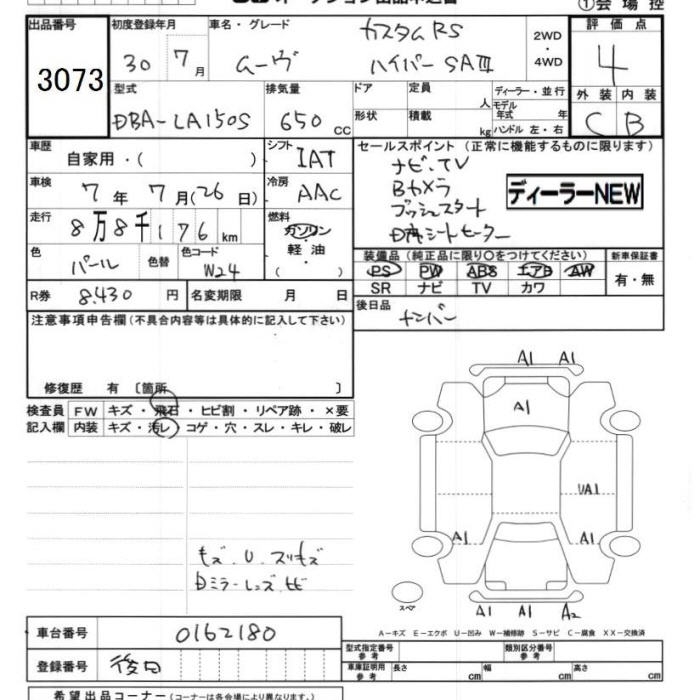 ①会場控
出品番号 3073
初度登録年月 30 7月
車名・グレード ムーヴ カスタムRS ハイパーSAⅢ
2WD・4WD
評価点 4
外装 C 内装 B
型式 DBA-LA150S
排気量 650 CC
ドア 形状
定員 人
積載 kg
ディーラー・並行
モデル年式 年
ハンドル 左・右
車歴 自家用・( )
シフト IAT
車検 7年7月(26日)
冷房 AAC
走行 8万8千176km
燃料 ガソリン 軽油 ( )
色 パール
色替
色コード W24
R券 8.430円
名変期限 月 日
セールスポイント(正常に機能するものに限ります)
ナビ・TV
Bカメラ
プッシュスタート
ディーラーNEW
装備品(純正品に限り○をつけてください)
PS PW ABS エアB AW
SR ナビ TV カワ
新車保証書 有・無
後日品 ナンバー
注意事項申告欄(不具合内容等は具体的に記入して下さい)
修復歴 有〔箇所 〕
検査員記入欄
FW キズ・飛石・ヒビ割・リペア跡・×要
内装 キズ・汚レ・コゲ・穴・スレ・キレ・破レ
キズ.U.スリキズ
A1 A1
A1
UA1
A1 A1
A1 A1 A2
スペア
A-キズ E-エクボ U-凹み W-補修跡 S-サビ C-腐食 XX-交換済
車台番号 0162180
登録番号 後日
型式指定番号 参考
類別区分番号 参考
車庫証明用 参考 長さ cm 幅 cm 高さ cm
希望出品コーナー(コーナーは各会場により異なります)